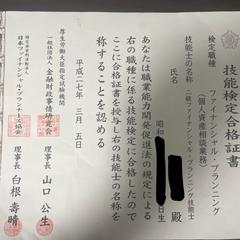 技能検定合格証書
検定職種
ファイナンシャル・プランニング
(個人資産相談業務)
技能士の名称 二級ファイナンシャル・プランニング技能士
氏名
殿
昭和
日生
あなたは職業能力開発促進法の規定による
右の職種に係る技能検定に合格したので
ここに合格証書を授与し右の技能士の名称を
称することを認める
平成二十七年三月五日
厚生労働大臣指定試験機関
一般社団法人 金融財政事情研究会
理事長 山口公生
日本ファイナンシャル・プランナーズ協会
理事長 白根壽晴